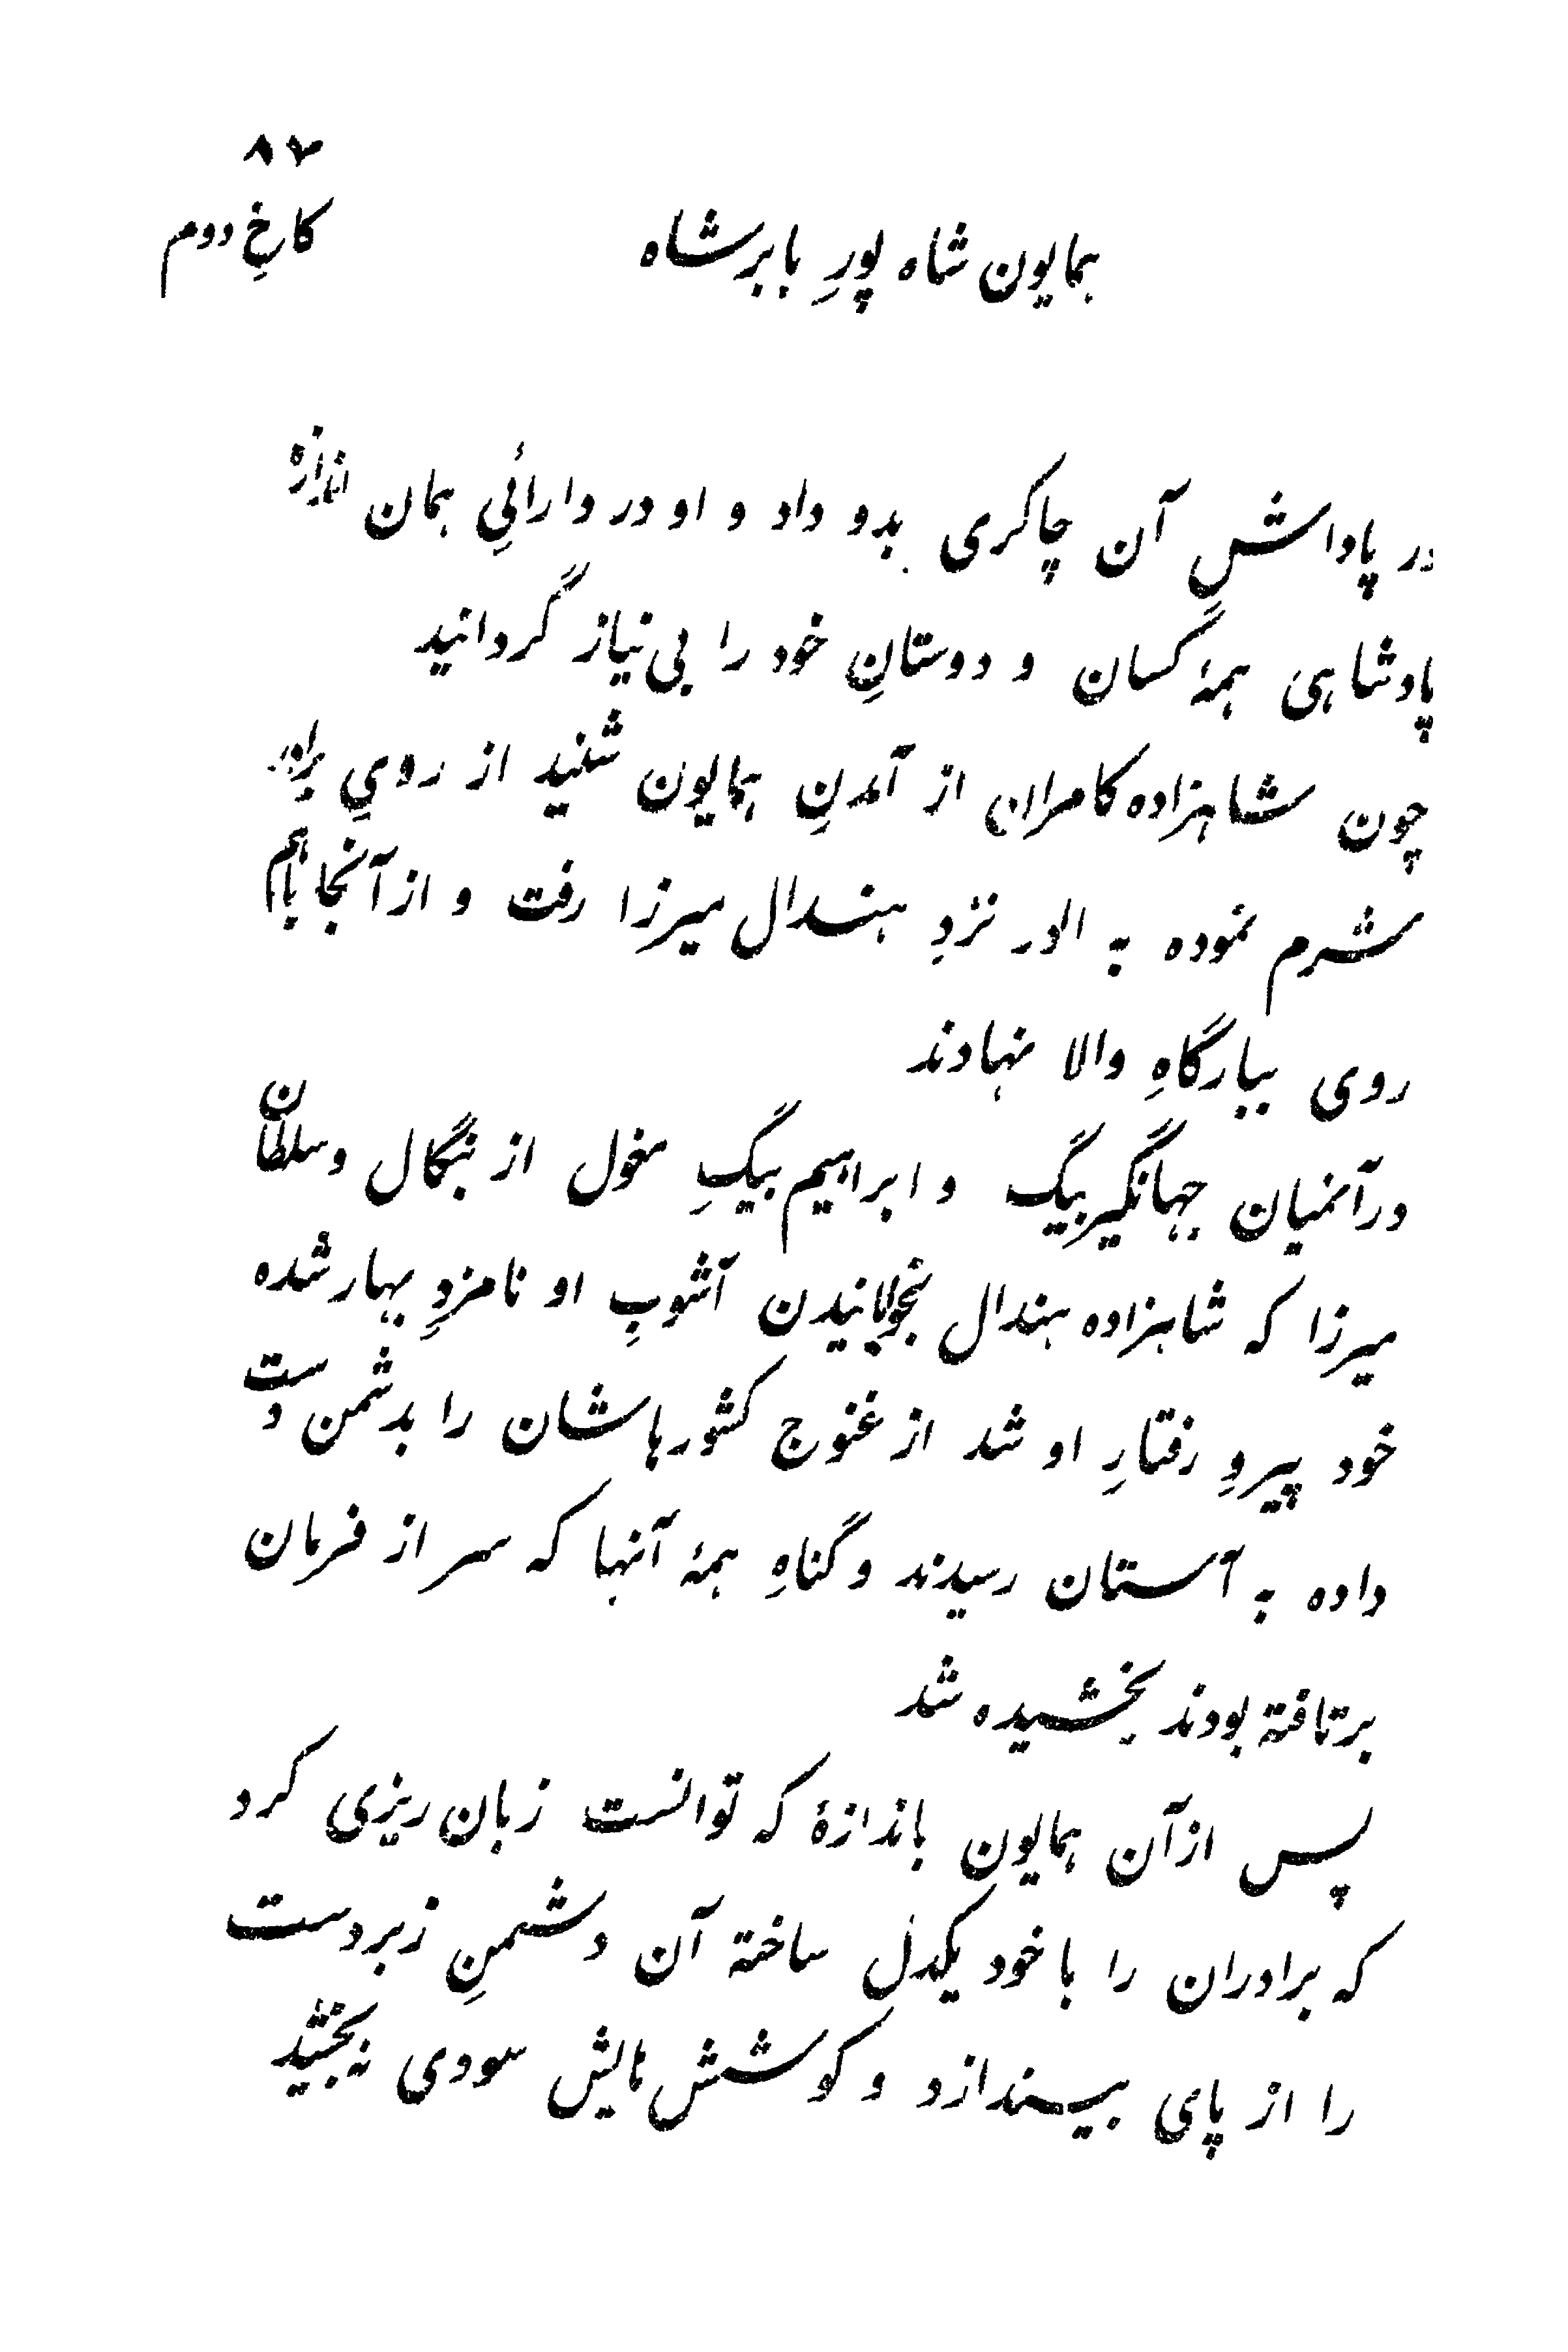 ۸۷
کاخِ دوم
همایون شاه پورِ بابرشاه
در پاداشِ آن چاکری بدو داد و او در دارائیِ همان اندازهٔ
پادشاهی همهٔ کسان و دوستانِ خود را بی نیاز گردانید
چون شاهزاده کامران از آمدنِ همایون شنید از رویِ برادر
شرم نموده به الور نزدِ هندال میرزا رفت و از آنجا باهم
روی ببارگاهِ والا نهادند
درآنمیان جهانگیر بیگ و ابراهیم بیگِ مغول از بنگال و سلطان
میرزا که شاهزاده هندال بخوابانیدن آشوبِ او نامزدِ بهار شده
خود پیروِ رفتارِ او شد از غنوج کشورهاشان را بدشمن دست
داده به آستان رسیدند و گناهِ همهٔ آنها که سر از فرمان
برتافته بودند بخشیده شد
پس از آن همایون باندازهٔ که توانست زبان ریزی کرد
که برادران را با خود یکدل ساخته آن دشمنِ زبردست
را از پای بیندازد و کوشش‌هایش سودی نه بخشید